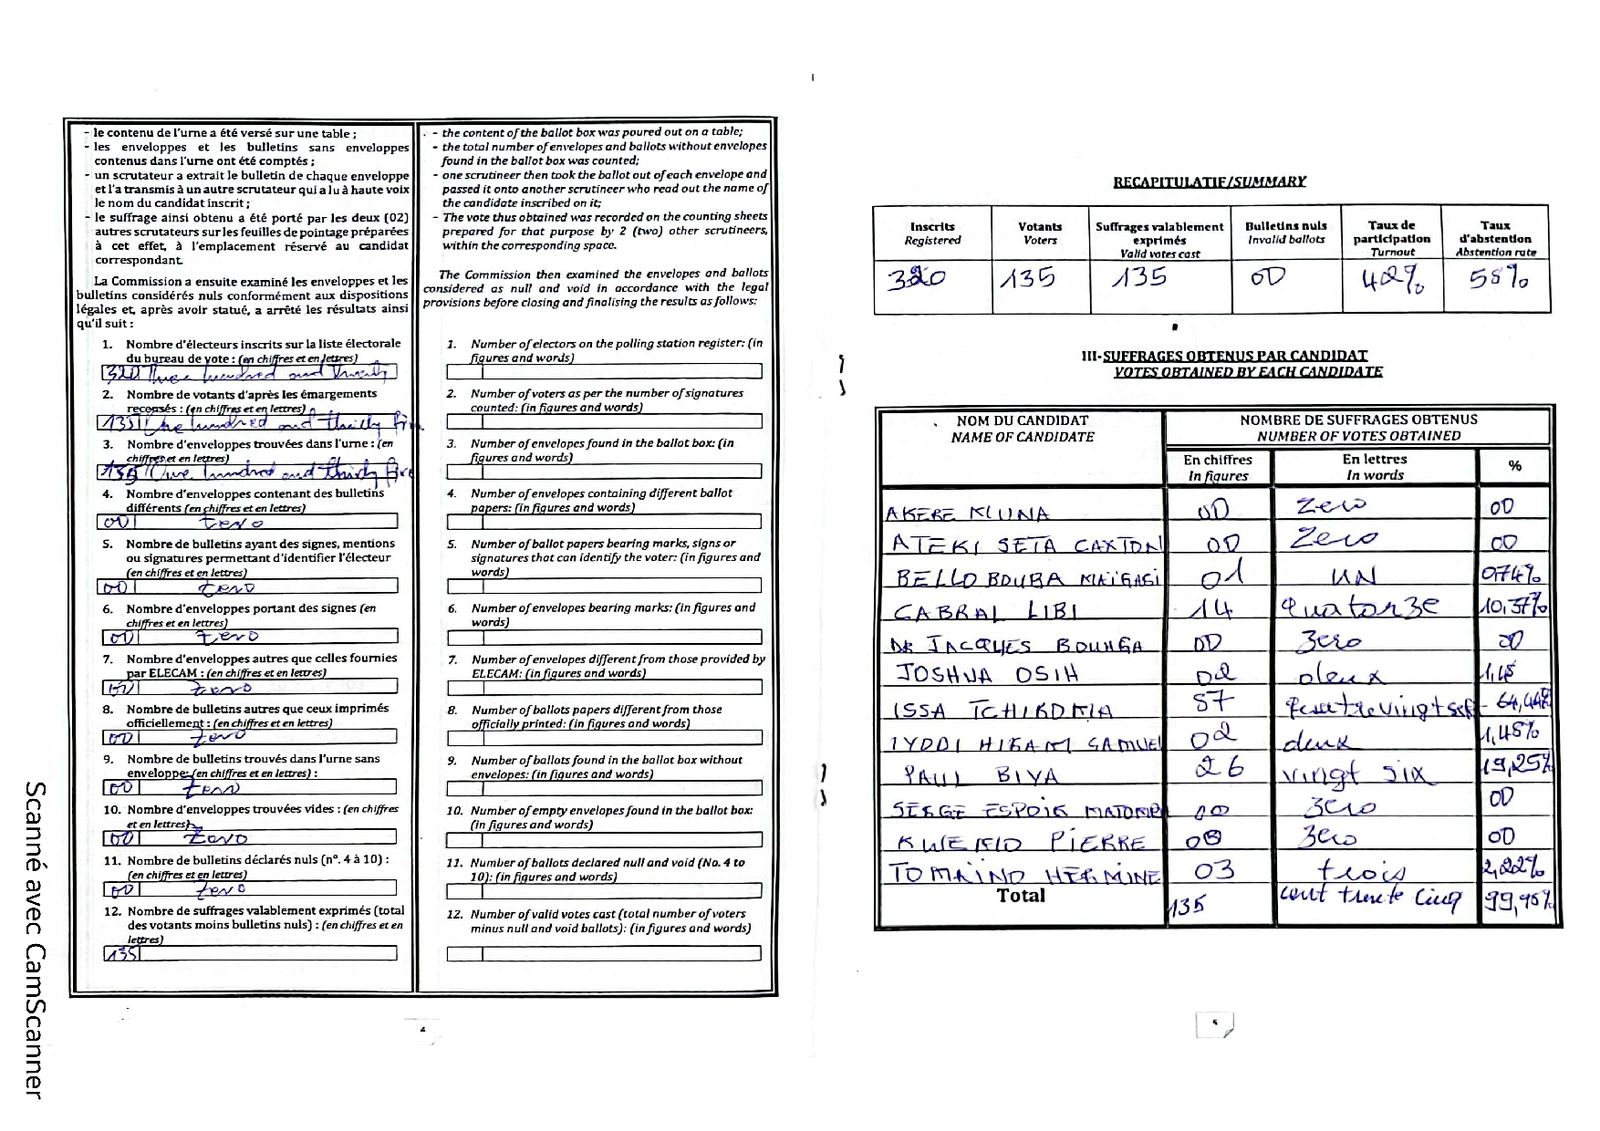 - le contenu de l'urne a été versé sur une table ;
- les enveloppes et les bulletins sans enveloppes
contenus dans l'urne ont été comptés ;
- un scrutateur a extrait le bulletin de chaque enveloppe
et l'a transmis à un autre scrutateur qui a lu à haute voix
le nom du candidat inscrit ;
- le suffrage ainsi obtenu a été porté par les deux (02)
autres scrutateurs sur les feuilles de pointage préparées
à cet effet, à l'emplacement réservé au candidat
correspondant.
La Commission a ensuite examiné les enveloppes et les
bulletins considérés nuls conformément aux dispositions
légales et, après avoir statué, a arrêté les résultats ainsi
qu'il suit :
1. Nombre d'électeurs inscrits sur la liste électorale
du bureau de vote : (en chiffres et en lettres)
320 Three hundred and twenty
2. Nombre de votants d'après les émargements
recensés : (en chiffres et en lettres)
135 One hundred and thirty five
3. Nombre d'enveloppes trouvées dans l'urne : (en
chiffres et en lettres)
135 One hundred and thirty five
4. Nombre d'enveloppes contenant des bulletins
différents (en chiffres et en lettres)
00 zero
5. Nombre de bulletins ayant des signes, mentions
ou signatures permettant d'identifier l'électeur
(en chiffres et en lettres)
00 zero
6. Nombre d'enveloppes portant des signes (en
chiffres et en lettres)
00 zero
7. Nombre d'enveloppes autres que celles fournies
par ELECAM : (en chiffres et en lettres)
00 zero
8. Nombre de bulletins autres que ceux imprimés
officiellement : (en chiffres et en lettres)
00 zero
9. Nombre de bulletins trouvés dans l'urne sans
enveloppe: (en chiffres et en lettres) :
00 zero
10. Nombre d'enveloppes trouvées vides : (en chiffres
et en lettres)
00 zero
11. Nombre de bulletins déclarés nuls (n°. 4 à 10) :
(en chiffres et en lettres)
00 zero
12. Nombre de suffrages valablement exprimés (total
des votants moins bulletins nuls) : (en chiffres et en
lettres)
135
- the content of the ballot box was poured out on a table;
- the total number of envelopes and ballots without envelopes
found in the ballot box was counted;
- one scrutineer then took the ballot out of each envelope and
passed it onto another scrutineer who read out the name of
the candidate inscribed on it;
- The vote thus obtained was recorded on the counting sheets
prepared for that purpose by 2 (two) other scrutineers,
within the corresponding space.
The Commission then examined the envelopes and ballots
considered as null and void in accordance with the legal
provisions before closing and finalising the results as follows:
1. Number of electors on the polling station register: (in
figures and words)
2. Number of voters as per the number of signatures
counted: (in figures and words)
3. Number of envelopes found in the ballot box: (in
figures and words)
4. Number of envelopes containing different ballot
papers: (in figures and words)
5. Number of ballot papers bearing marks, signs or
signatures that can identify the voter: (in figures and
words)
6. Number of envelopes bearing marks: (in figures and
words)
7. Number of envelopes different from those provided by
ELECAM: (in figures and words)
8. Number of ballots papers different from those
officially printed: (in figures and words)
9. Number of ballots found in the ballot box without
envelopes: (in figures and words)
10. Number of empty envelopes found in the ballot box:
(in figures and words)
11. Number of ballots declared null and void (No. 4 to
10): (in figures and words)
12. Number of valid votes cast (total number of voters
minus null and void ballots): (in figures and words)
4
RECAPITULATIF/SUMMARY
Inscrits Registered | Votants Voters | Suffrages valablement exprimés Valid votes cast | Bulletins nuls Invalid ballots | Taux de participation Turnout | Taux d'abstention Abstention rate
320 135 135 00 42% 58%
III-SUFFRAGES OBTENUS PAR CANDIDAT
VOTES OBTAINED BY EACH CANDIDATE
NOM DU CANDIDAT NOMBRE DE SUFFRAGES OBTENUS
NAME OF CANDIDATE NUMBER OF VOTES OBTAINED
En chiffres En lettres %
In figures In words
AKERE MUNA 00 Zero 00
ATEKI SETA CAXTON 00 Zero 00
BELLO BOUBA MAÏGARI 01 UN 0,74%
CABRAL LIBI 14 quatorze 10,37%
DR JACQUES BOUHGA 00 zero 00
JOSHUA OSIH 02 deux 1,48
ISSA TCHIROMA 87 quatre vingt sept 64,44%
IYODI HIRAM SAMUEL 02 deux 1,48%
PAUL BIYA 26 vingt six 19,25%
SERGE ESPOIR MATOMB 00 zero 00
KWEMO PIERRE 00 zero 00
TOMAÏNO HERMINE 03 trois 2,22%
Total 135 cent trente cinq 99,98%
5
Scanné avec CamScanner